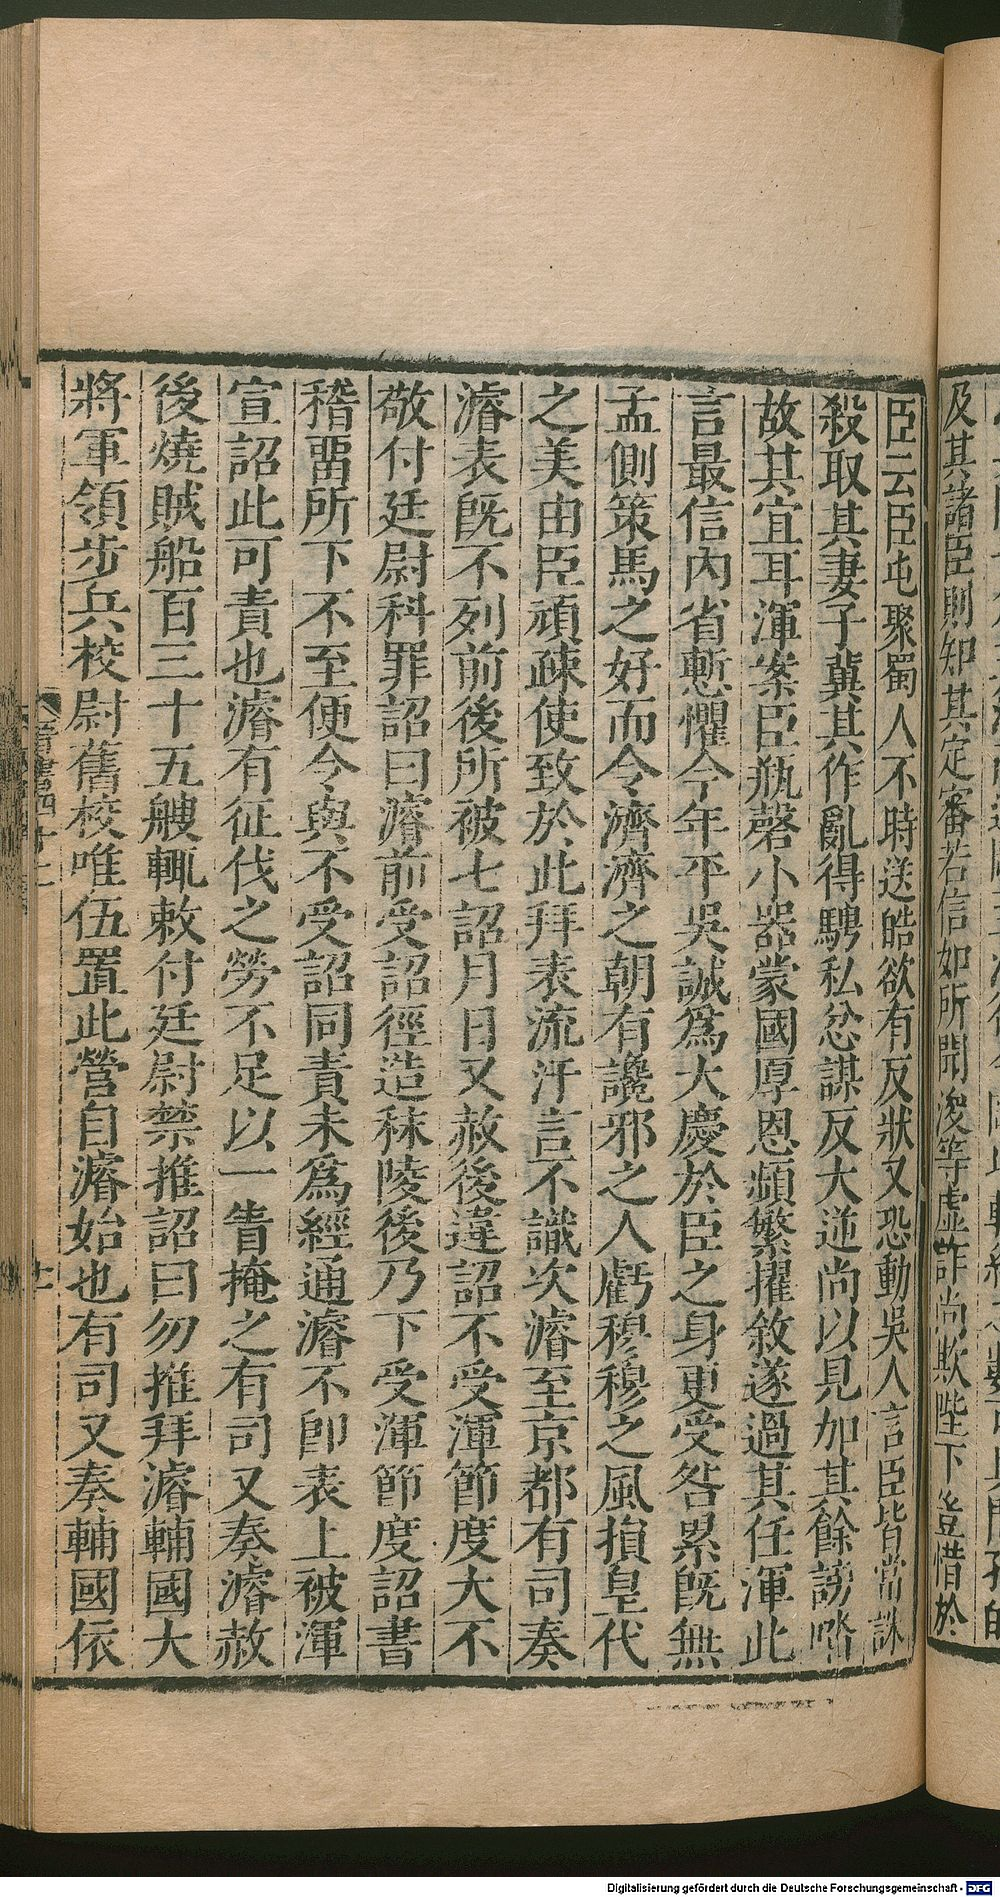 及其諸臣則知其定審若信如所聞浚等虛詐尚欺陛下豈惜於
臣云臣屯聚蜀人不時送皓欲有反狀又恐動吳人言臣皆當誅
殺取其妻子冀其作亂得騁私忿謀反大逆尚以見加其餘謗𠴲
故其宜耳渾案臣瓶磬小器蒙國厚恩頻繁擢敘遂過其任渾此
言最信內省慙懼今年平吳誠爲大慶於臣之身更受咎累旣無
孟側策馬之好而令濟濟之朝有讒邪之人虧穆穆之風損皇代
之美由臣頑疎使致於此拜表流汗言不識次濬至京都有司奏
濬表旣不列前後所被七詔月日又赦後違詔不受渾節度大不
敬付廷尉科罪詔曰濬前受詔徑造秣陵後乃下受渾節度詔書
稽畱所下不至便令與不受詔同責未爲經通濬不卽表上被渾
宣詔此可責也濬有征伐之勞不足以一眚掩之有司又奏濬赦
後燒賊船百三十五艘輒敕付廷尉禁推詔曰勿推拜濬輔國大
將軍領步兵校尉舊校唯伍置此營自濬始也有司又奏輔國依
晉書四十二
十一
Digitalisierung gefördert durch die Deutsche Forschungsgemeinschaft - DFG